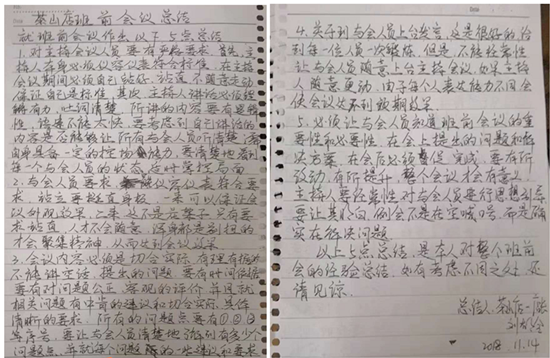 茶山店班前会议总结
就班前会议作出以下5点总结
1.对主持会议人员要有严格要求,首先主
持人在身必须仪容仪表符合标准,在主持
会议期间必须自己站好,站直不随意走动
保证自己是标准,其次主持人讲话必须铿
锵有力,吐词清楚,所讲的内容要有逻辑
性,语速不能太快,要考虑到自己讲话的
内容是否能够让所有与会人员听清楚,活
自身具备一定的控场能力,要清楚地看到
每个与会人员的状态,及时掌控局面
2.与会人员要求,仪容仪表符合要
求,站立要挺直身板,一来可以保证会
议外观效果,二来,这不是花架子,只有要
求站直,人才不会随意,浑身都是别扭的
才会聚集精神,从而达到会议效果
3.会议内容必须是切合实际,有理有据而
不能讲空话,提出的问题,要有时间依据
要有对问题公正,客观的评价,并且就
相关问题点有中肯的建议和切合实际,具体
清晰的要求,所有的问题点要有①②③
等序号,要让与会人员清楚地认识到有多少个
问题点,并就每个问题点的一些建议和要求
4.关于到与会人员上台发言,这是很好的给
到每一位人员一次锻炼,但是不能经常性
让与会人员随意上台主持会议,如果主持
人随意更动,由于每个人表达能力不同会
使会议达不到预期效果.
5.必须让与会人员知道班前会议的重
要性和必要性,在会上提出的问题和解
决方案,在会后必须督促完成,要有所
改动,有所提升,整个会议才会有意义
主持人要经常性对与会人员进行思想引导
要让其明白,例会不是在空喊口号,都是确确
实实在解决问题
以上5点总结,是本人对整个班前
会的经验总结,如有考虑不周之处,还
请见谅.
总结人:茶山店一店
2018 11.14